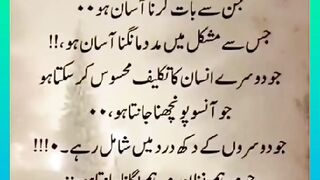 جن سے بات کرنا آسان ہو۰۰
جس سے مشکل میں مدد مانگنا آسان ہو،!!
جو دوسرے انسان کا تکلیف محسوس کر سکتا ہو
جو آنسو پونچھنا جانتا ہو،۰۰
جو دوسروں کے دکھ درد میں شامل رہے۔۰!!!